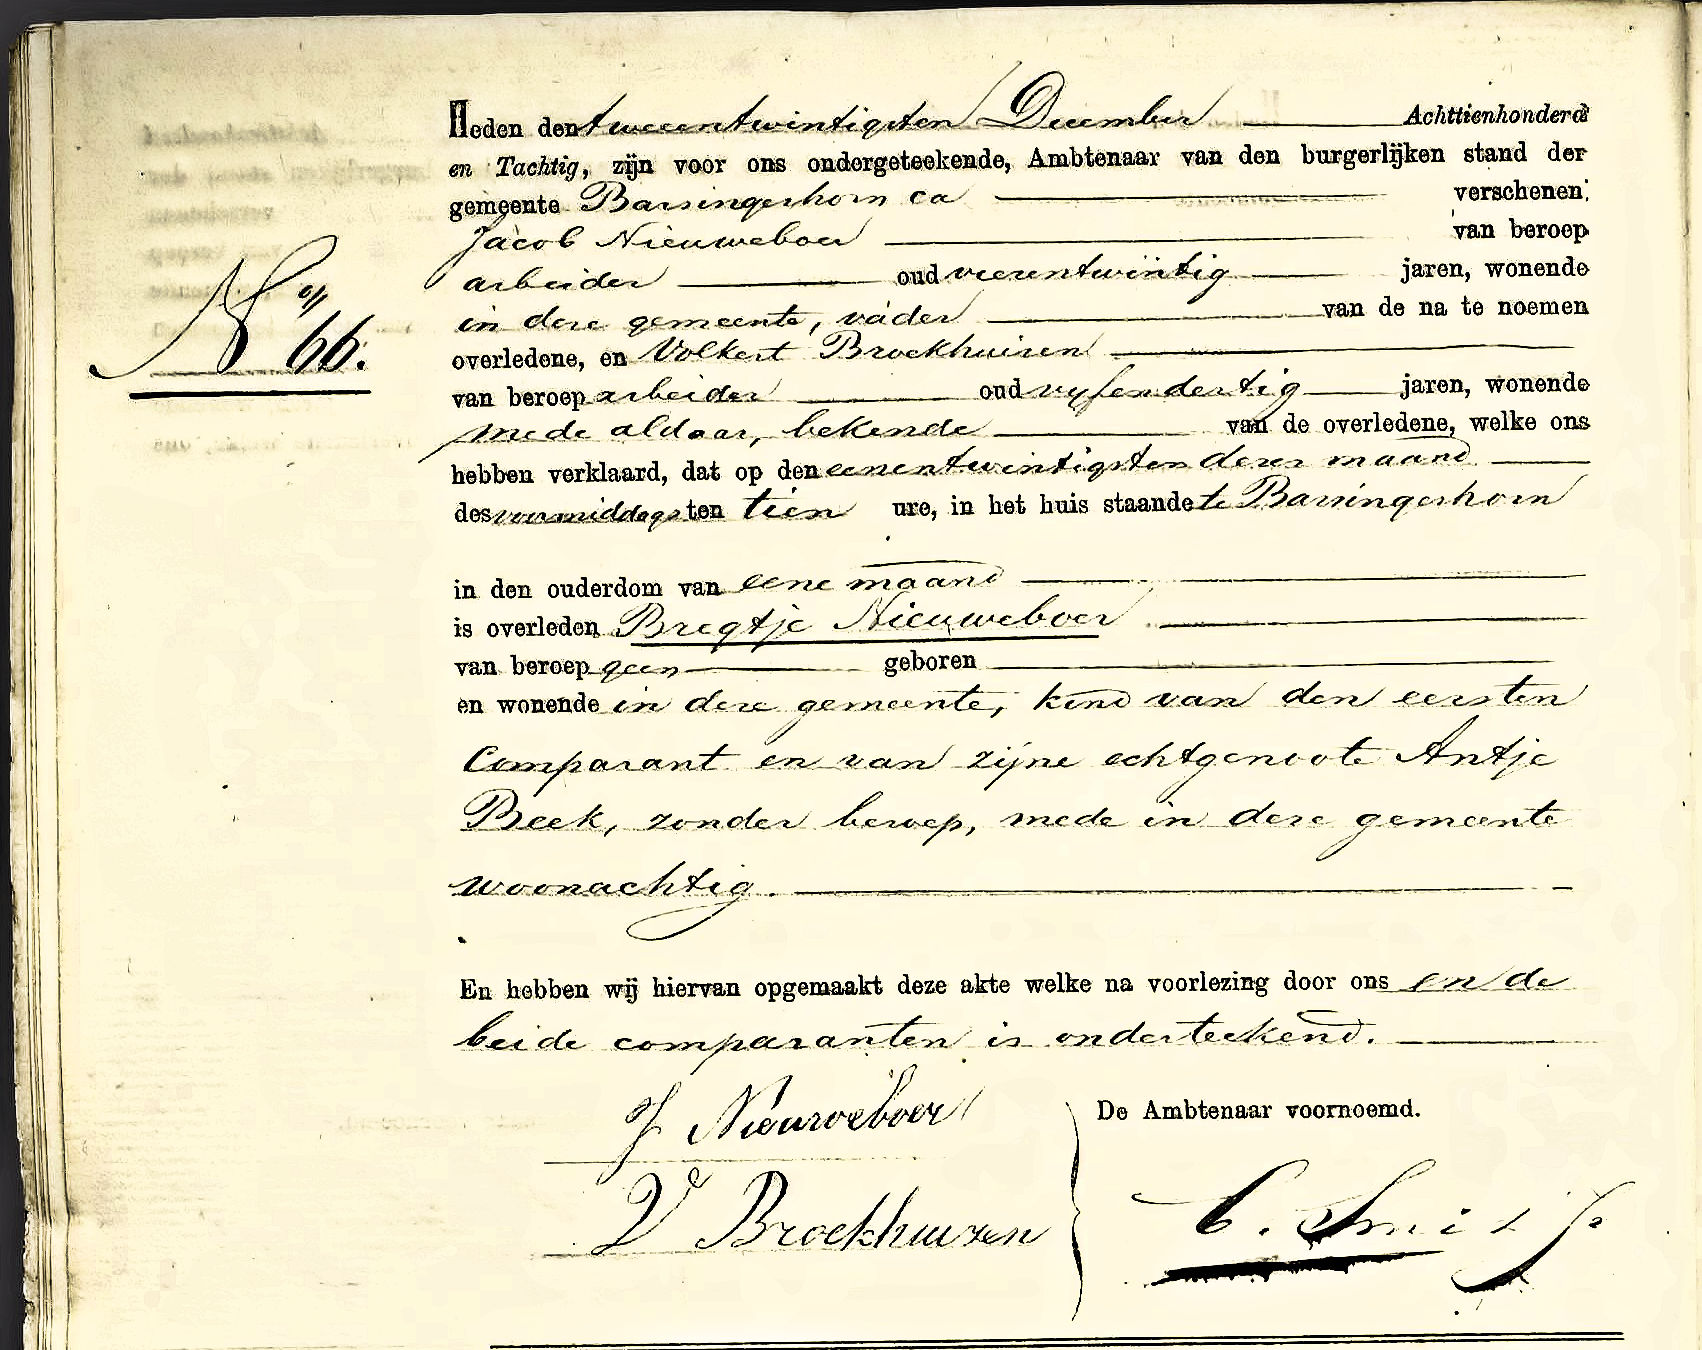 Heden den tweeentwintigsten December Achttienhonderd
en Tachtig, zijn voor ons ondergeteekende, Ambtenaar van den burgerlijken stand der
gemeente Barsingerhorn ca verschenen:
Jacob Nieuweboer van beroep
arbeider oud vierentwintig jaren, wonende
in deze gemeente, vader van de na te noemen
overledene, en Volkert Broekhuizen
van beroep arbeider oud vyfendertig jaren, wonende
mede aldaar, bekende van de overledene, welke ons
hebben verklaard, dat op den eenentwintigsten dezer maand
des voormiddags ten tien ure, in het huis staande te Barsingerhorn
in den ouderdom van eene maand
is overleden Bregtje Nieuweboer
van beroep geen geboren
en wonende in deze gemeente, kind van den eersten
Comparant en van zijne echtgenoote Antje
Beek, zonder beroep, mede in deze gemeente
woonachtig.
No 66.
En hebben wij hiervan opgemaakt deze akte welke na voorlezing door ons en de
beide comparanten is onderteekend.
J Nieuweboer
V Broekhuizen
De Ambtenaar voornoemd.
C. Smit Jz